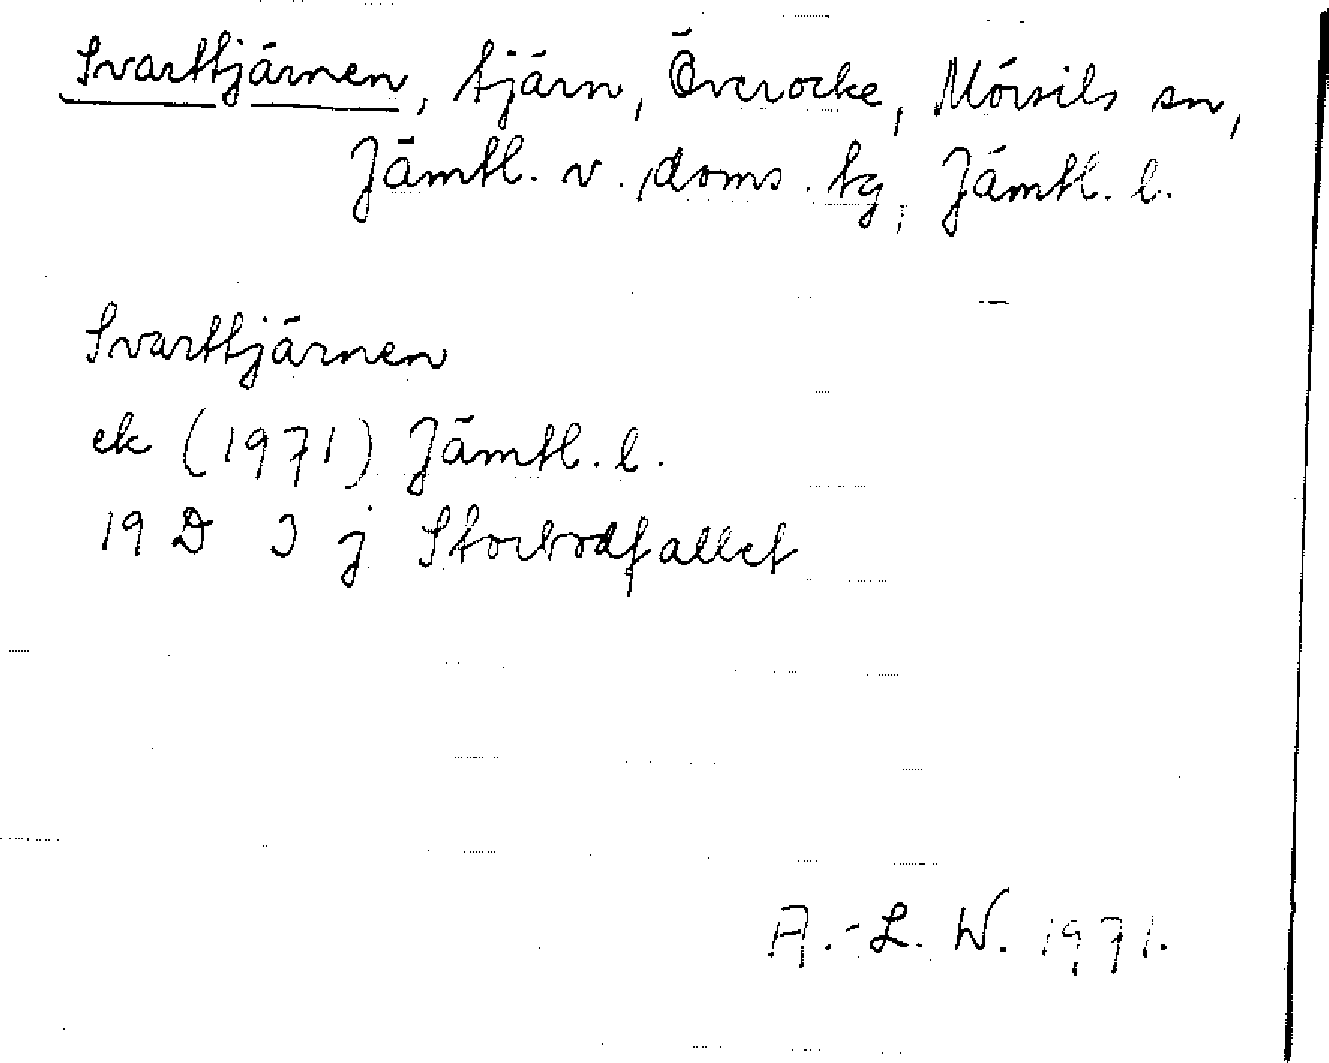 Svarttjärnen, tjärn, Överocke, Mörsils sn,
Jämtl. v. doms. tg, Jämtl. l.
Svarttjärnen
ek (1971) Jämtl. l.
19 D 3 j Storbodfallet
A.-L. W. 1971.